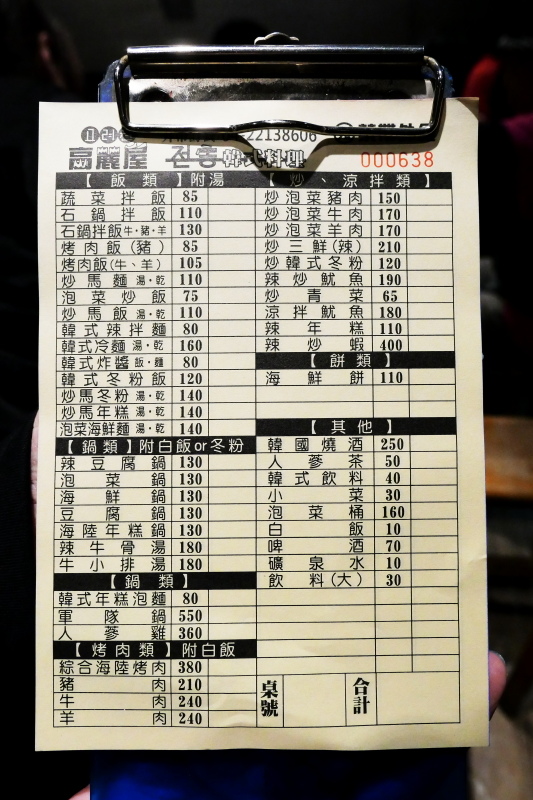 22138606
高麗屋 韓式料理
000638
【飯類】附湯
蔬菜拌飯 85
石鍋拌飯 110
石鍋拌飯牛・豬・羊 130
烤肉飯(豬) 85
烤肉飯(牛、羊) 105
炒馬麵 湯・乾 110
泡菜炒飯 75
炒馬飯 湯・乾 110
韓式辣拌麵 80
韓式冷麵 湯・乾 160
韓式炸醬 飯・麵 80
韓式冬粉飯 120
炒馬冬粉 湯・乾 140
炒馬年糕 湯・乾 140
泡菜海鮮麵 湯・乾 140
【鍋類】附白飯or冬粉
辣豆腐鍋 130
泡菜鍋 130
海鮮鍋 130
豆腐鍋 130
海陸年糕鍋 130
辣牛骨湯 180
牛小排湯 180
【鍋類】
韓式年糕泡麵 80
軍隊鍋 550
人蔘雞 360
【烤肉類】附白飯
綜合海陸烤肉 380
豬肉 210
牛肉 240
羊肉 240
【炒、涼拌類】
炒泡菜豬肉 150
炒泡菜牛肉 170
炒泡菜羊肉 170
炒三鮮(辣) 210
炒韓式冬粉 120
辣炒魷魚 190
炒青菜 65
涼拌魷魚 180
辣年糕 110
辣炒蝦 400
【餅類】
海鮮餅 110
【其他】
韓國燒酒 250
人蔘茶 50
韓式飲料 40
小菜 30
泡菜桶 160
白飯 10
啤酒 70
礦泉水 10
飲料(大) 30
桌號
合計